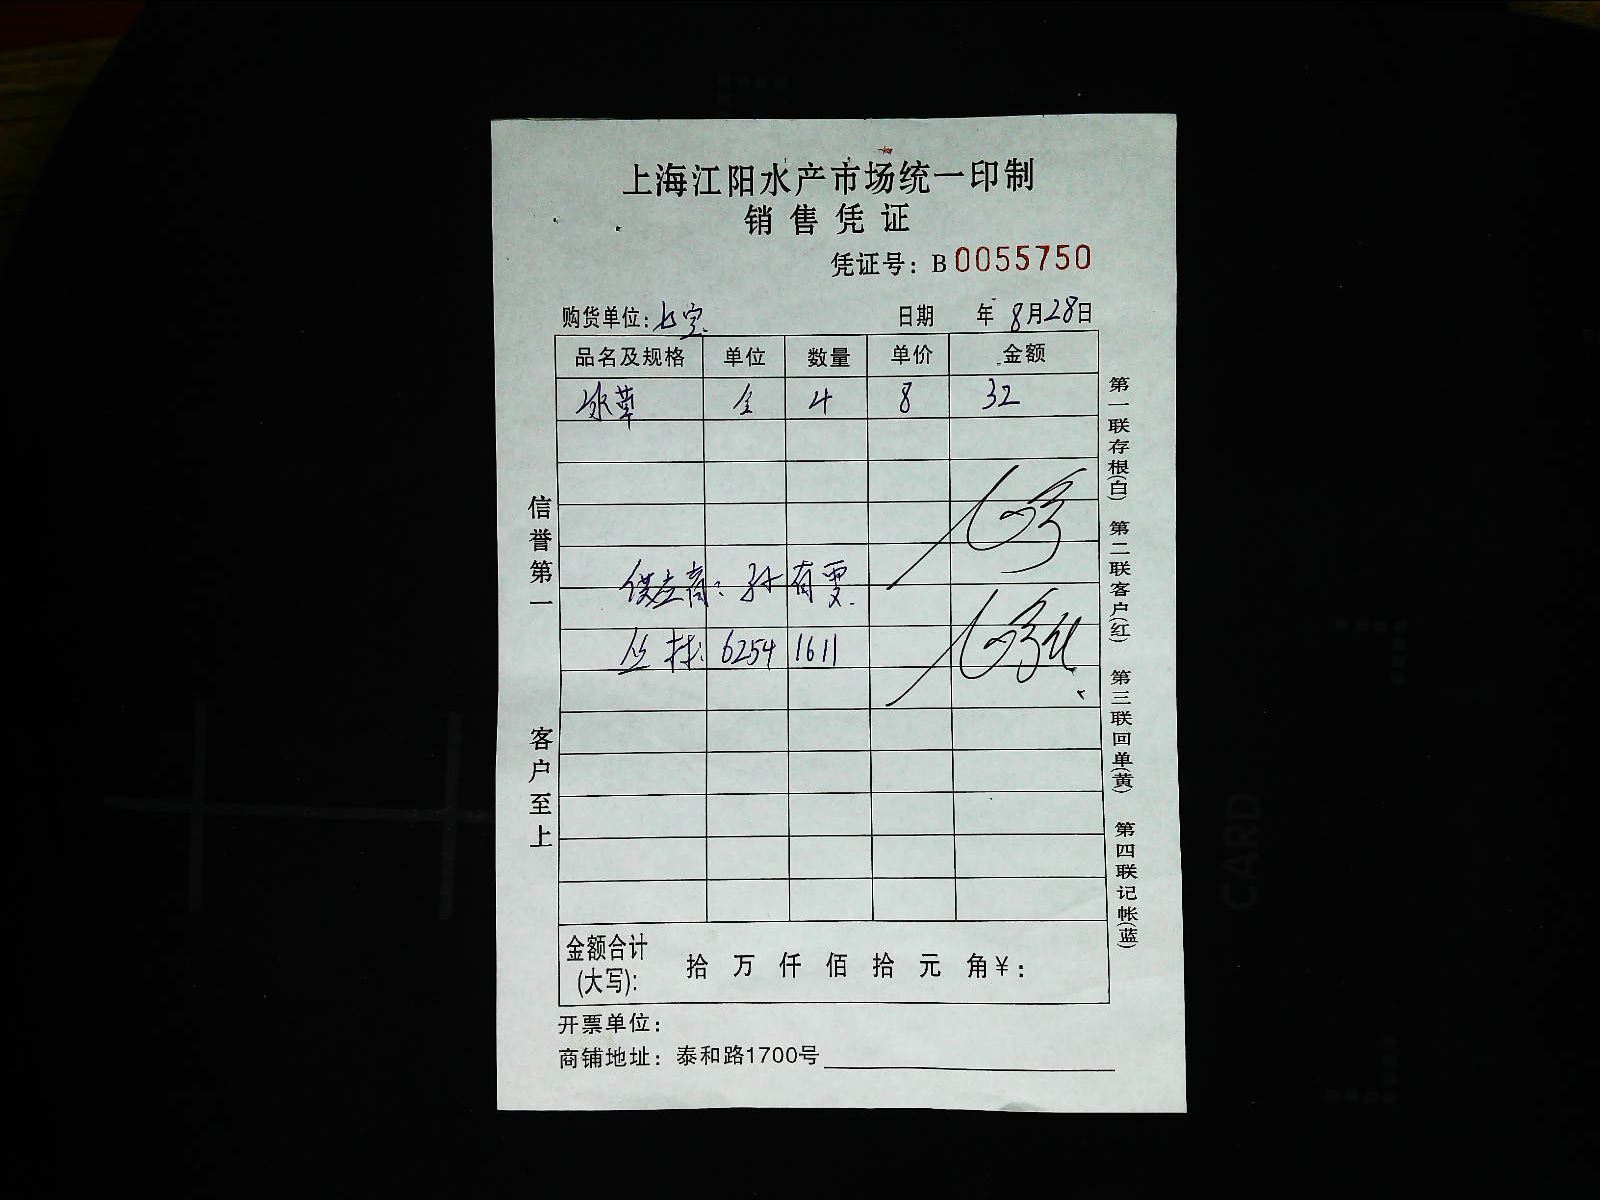 上海江阳水产市场统一印制
销售凭证
凭证号：B 0055750
购货单位：七宝 日期 年 8月28日
品名及规格 单位 数量 单价 金额
冰草 4 8 32
供应商：孙有雯
62541611
金额合计(大写)： 拾 万 仟 佰 拾 元 角 ¥：
开票单位：
商铺地址：泰和路1700号
信誉第一
客户至上
第一联存根(白) 第二联客户(红) 第三联回单(黄) 第四联记帐(蓝)
CARD